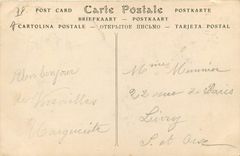 POST CARD Carte Postale POSTKARTE
BRIEFKAART POSTKAART
CARTOLINA POSTALE ОТКРЫТОЕ ПИСЬМО TARJETA POSTAL
bonjour
de Versailles
Marguerite
Mme Meunier
22 rue de Paris
Livry
S. et Oise